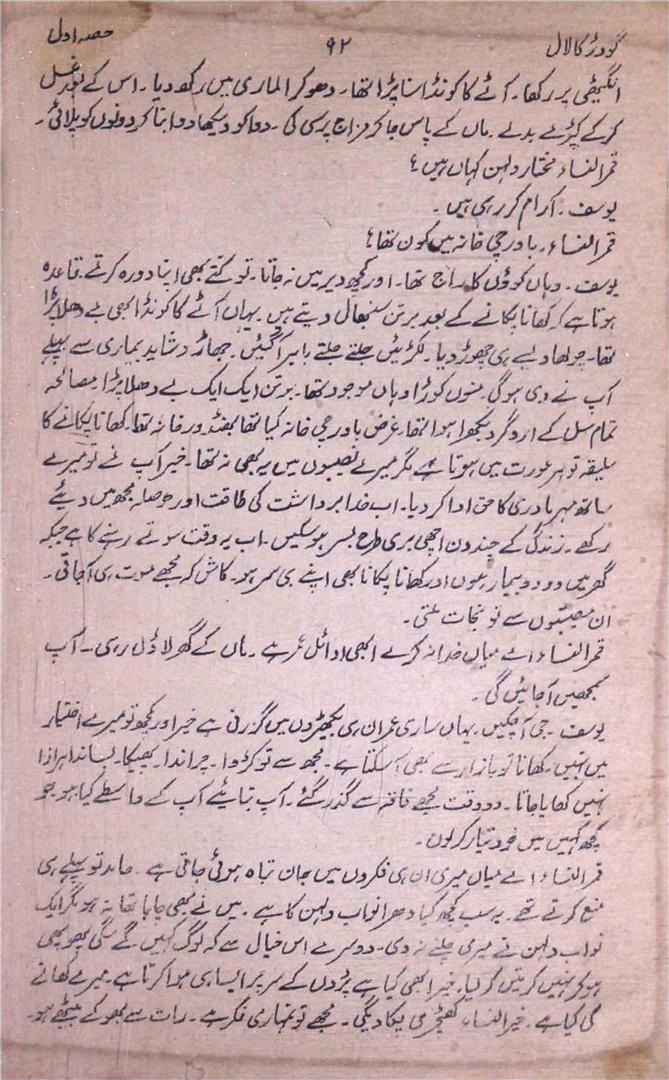 گودڑ کا لال ۹۲ حصہ اول
انگیٹھی پر رکھا۔ آٹے کا کونڈا سنا پڑا تھا۔ دھو کر الماری میں رکھ دیا۔ اس کے بعد غسل
کر کے کپڑے بدلے۔ ماں کے پاس جا کر مزاج پرسی کی۔ دوا کو دیکھا دوا بنا کر دونوں کو پلائی۔
قمر النساء۔ مختار دلہن کہاں ہیں؟
یوسف۔ آرام کر رہی ہیں۔
قمر النساء۔ باورچی خانہ میں کون تھا؟
یوسف۔ وہاں کوؤں کا راج تھا۔ اور کچھ دیر میں نہ جاتا۔ تو کتے بھی اپنا دورہ کرتے۔ قاعدہ
ہوتا ہے کہ کھانا پکانے کے بعد برتن سنبھال دیتے ہیں۔ یہاں آٹے کا کونڈا بھی بے دھلا پڑا
تھا۔ چولھا ویسے ہی چھوڑ دیا۔ لکڑئیں جلتے جلتے باہر آ گئیں۔ جھاڑو شاید بیماری سے پہلے
آپ نے دی ہوگی۔ منوں کوڑا وہاں موجود تھا۔ برتن ایک ایک بے دھلا پڑا مصالحہ
تمام سل کے ارد گرد بکھرا ہوا تھا۔ غرض باورچی خانہ کیا تھا بھنڈور خانہ تھا۔ کھانا پکانے کا
سلیقہ تو ہر عورت میں ہوتا ہے مگر میرے نصیبوں میں یہ بھی نہ تھا۔ خیر آپ نے تو میرے
ساتھ مہر مادری کا حق ادا کر دیا۔ اب خدا برداشت کی طاقت اور حوصلہ مجھ میں دیئے
رکھے۔ زندگی کے چند دن اچھی بری طرح بسر ہو سکیں۔ اب یہ وقت سوتے رہنے کا ہے جبکہ
گھر میں دو دو بیمار ہوں اور کھانا پکانا بھی اپنے ہی سر ہو۔ کاش کہ مجھے موت ہی آ جاتی۔
ان مصیبتوں سے تو نجات ملتی۔
قمر النساء۔ اے میاں خدا نہ کرے ابھی اوائل عمر ہے۔ ماں کے گھر لاڈلی رہی۔ آپ
سمجھیں آ جائیں گی۔
یوسف۔ جی آ چکیں۔ یہاں ساری عمر ان ہی بکھیڑوں میں گزرنی ہے خیر اور کچھ تو میرے اختیار
میں نہیں۔ کھانا تو بازار سے بھی آ سکتا ہے۔ مجھ سے تو کڑوا۔ چراندا۔ پھیکا۔ بساندا ہرا‌زا
نہیں کھایا جاتا۔ دو وقت مجھے فاقہ سے گذر گئے۔ آپ بتایئے آپ کے واسطے کیا ہو۔ جو
کچھ کہیں میں خود تیار کر لوں۔
قمر النساء۔ اے میاں میری ان ہی فکروں میں جان تباہ ہوئی جاتی ہے۔ حامد تو پہلے ہی
منع کرتے تھے۔ یہ سب کچھ کیا دھرا نواب دلہن کا ہے۔ میں نے بھی چاہا تھا نہ ہو مگر ایک
نواب دلہن نے میری چلنے نہ دی۔ دوسرے اس خیال سے کہ لوگ کہیں گے سگی پھوپھی
ہو کر نہیں کرتیں کر لیا۔ خیر ابھی کیا ہے بڑوں کے سر پر ایسا ہی ہوا کرتا ہے۔ میرے کھانے
کی کیا ہے۔ خیر النساء کھچڑی پکا دیگی۔ مجھے تو تمہاری فکر ہے۔ رات سے بھوکے بیٹھے ہو۔